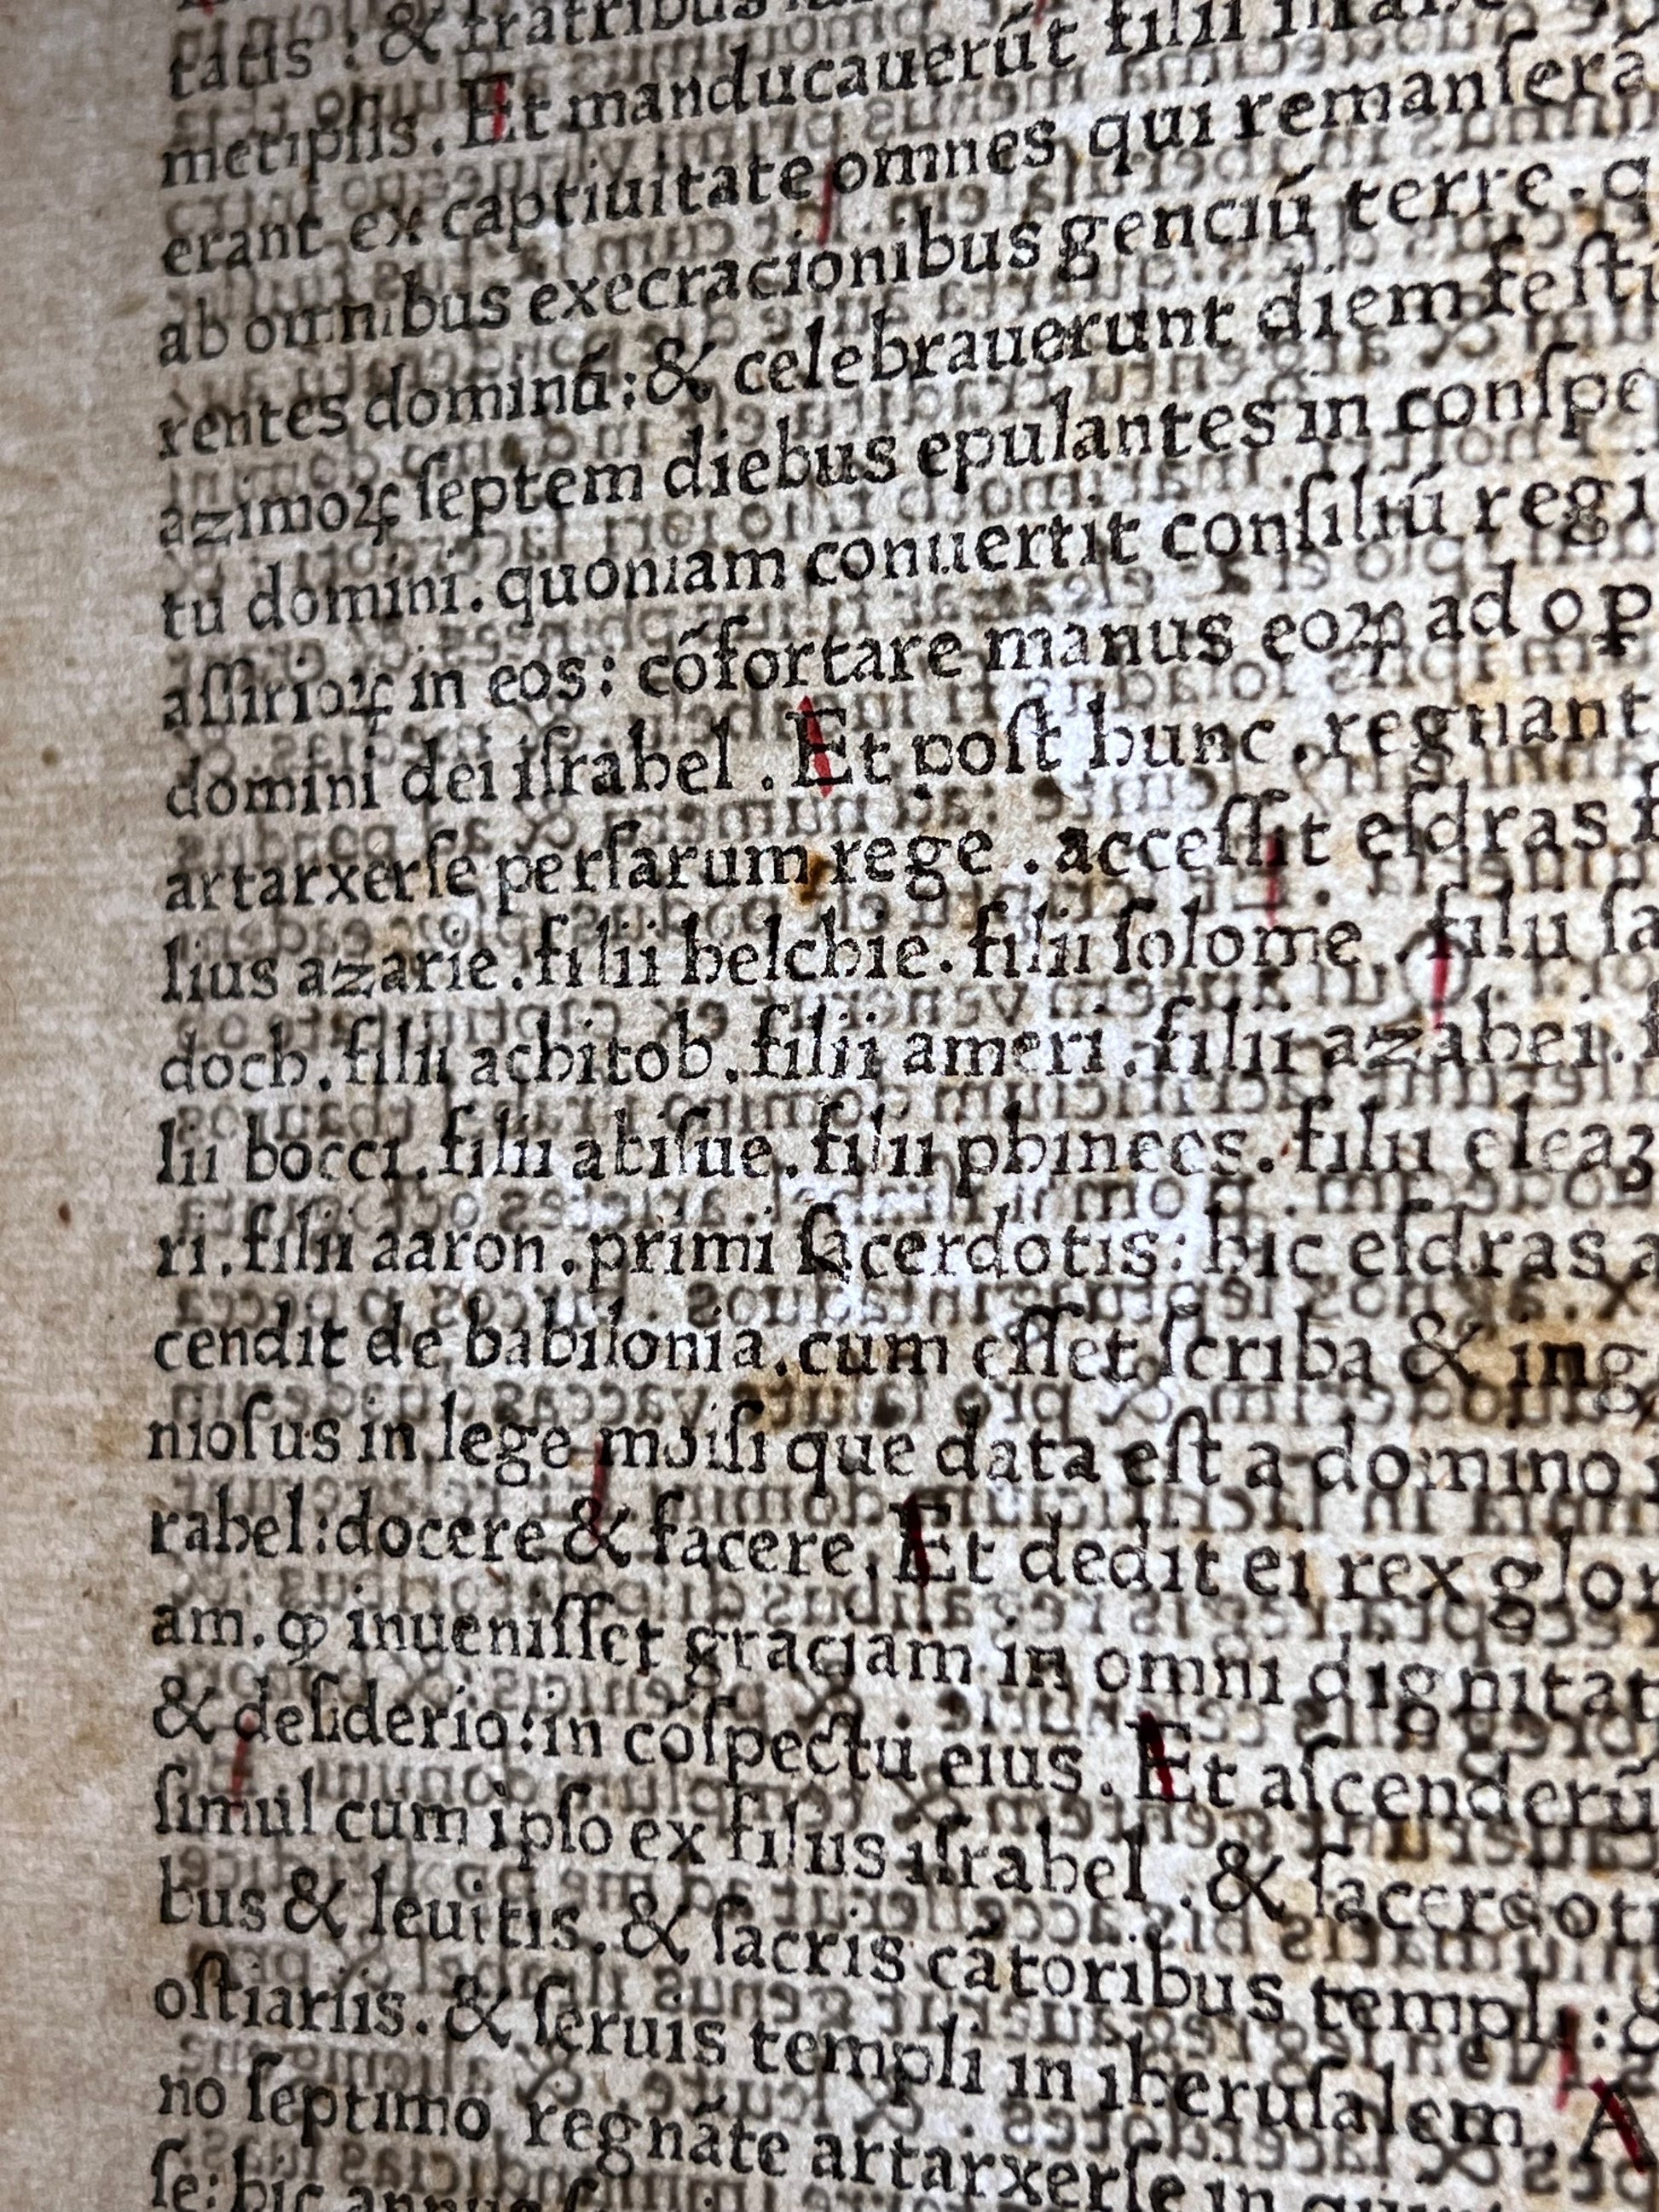 tatis : & fratribus
metipſis . Et manducauerút filii iſrahe
erant ex captiuitate omnes qui remanſerã
ab omnibus execracionibus genciú terre . q
rentes dominú : & celebrauerunt diem feſtú
azimoꝝ ſeptem diebus epulantes in conſpe
tu domini . quoniam conuertit conſiliú regi
aſſirioꝝ in eos : cófortare manus eoꝝ ad oꝑ
domini dei iſrahel . Et poſt hunc . regnant
artarxerſe perſarum rege . acceſſit eſdras f
lius azarie . filii helchie . filii ſolome . filii ſa
doch . filii achitob . filii ameri . filii azahei . f
lii bocci . filii abiſue . filii phinees . filii eleaz
ri . filii aaron . primi ſacerdotis : hic eſdras a
cendit de babilonia . cum eſſet ſcriba & ing
nioſus in lege moiſi que data eſt a domino
rahel : docere & facere . Et dedit ei rex glor
am . ꝙ inueniſſet graciam in omni dignitat
& deſiderio : in cóſpectu eius . Et aſcenderú
ſimul cum ipſo ex filiis iſrahel . & ſacerdoti
bus & leuitis . & ſacris cãtoribus templi : &
oſtiariis . & ſeruis templi in iheruſalem . A
no ſeptimo regnãte artarxerſe in
ſe : hic annus